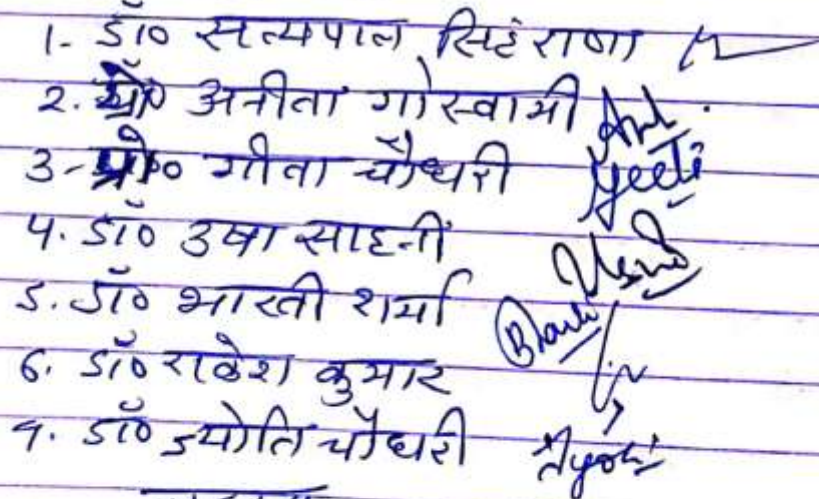 1- डॉ० सत्यपाल सिहं राणा
2. प्रो० अनीता गोस्वामी
3- प्रो० गीता चौधरी Geeta
4. डॉ० उषा साहनी Usha
5. डॉ० भारती शर्मा Bharti
6. डॉ० राकेश कुमार
७. डॉ० ज्योति चौधरी Jyoti